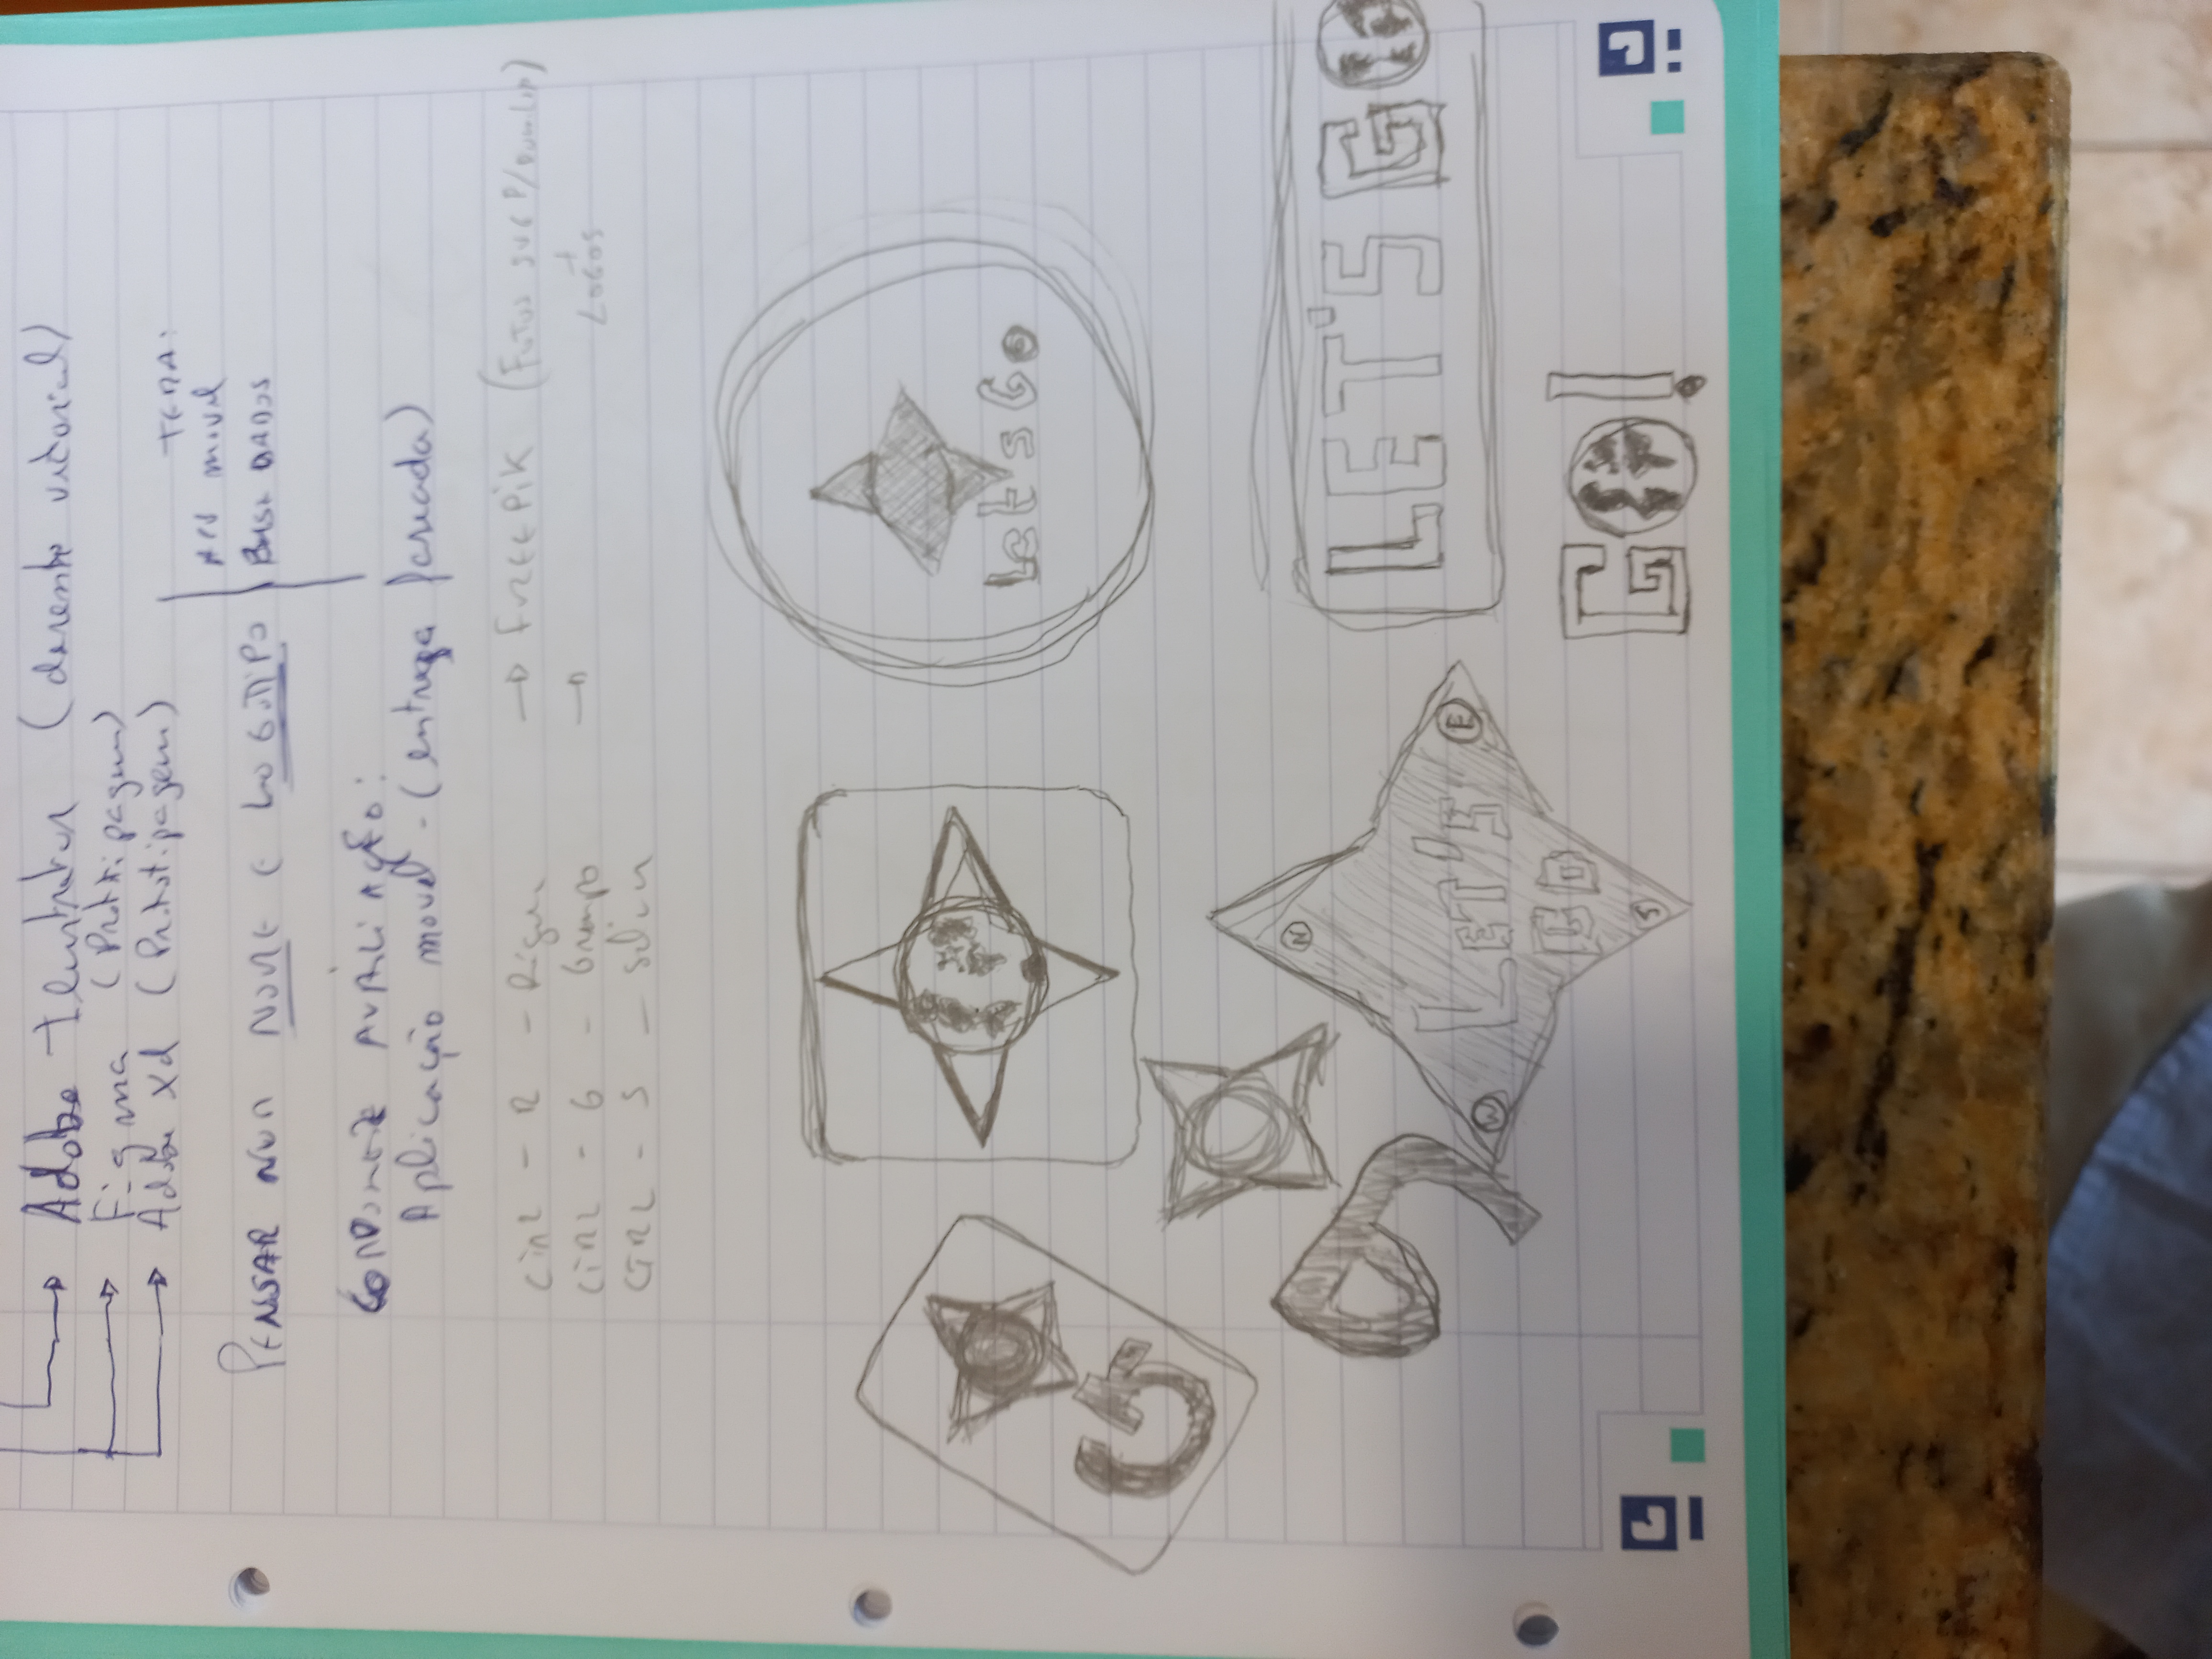 Adobe Ilustrator (desenho vectorial)
Figma (Prototipagem)
Adobe Xd (Prototipagem)
TEMA:
APP movel
BASE DADOS
PENSAR NUM NOME E LOGOTIPO
AVALIAÇÃO:
Aplicação movel - (entrega faseada)
CTRL - R - Régua
CTRL - G - Grupo
CTRL - S - Salvar
→ FREEPIK (FOTOS SVG P/
+
LOGOS
→
G
Let's Go
N
W
E
LET'S
GO
S
LET'S GO
GO!
iG
iG